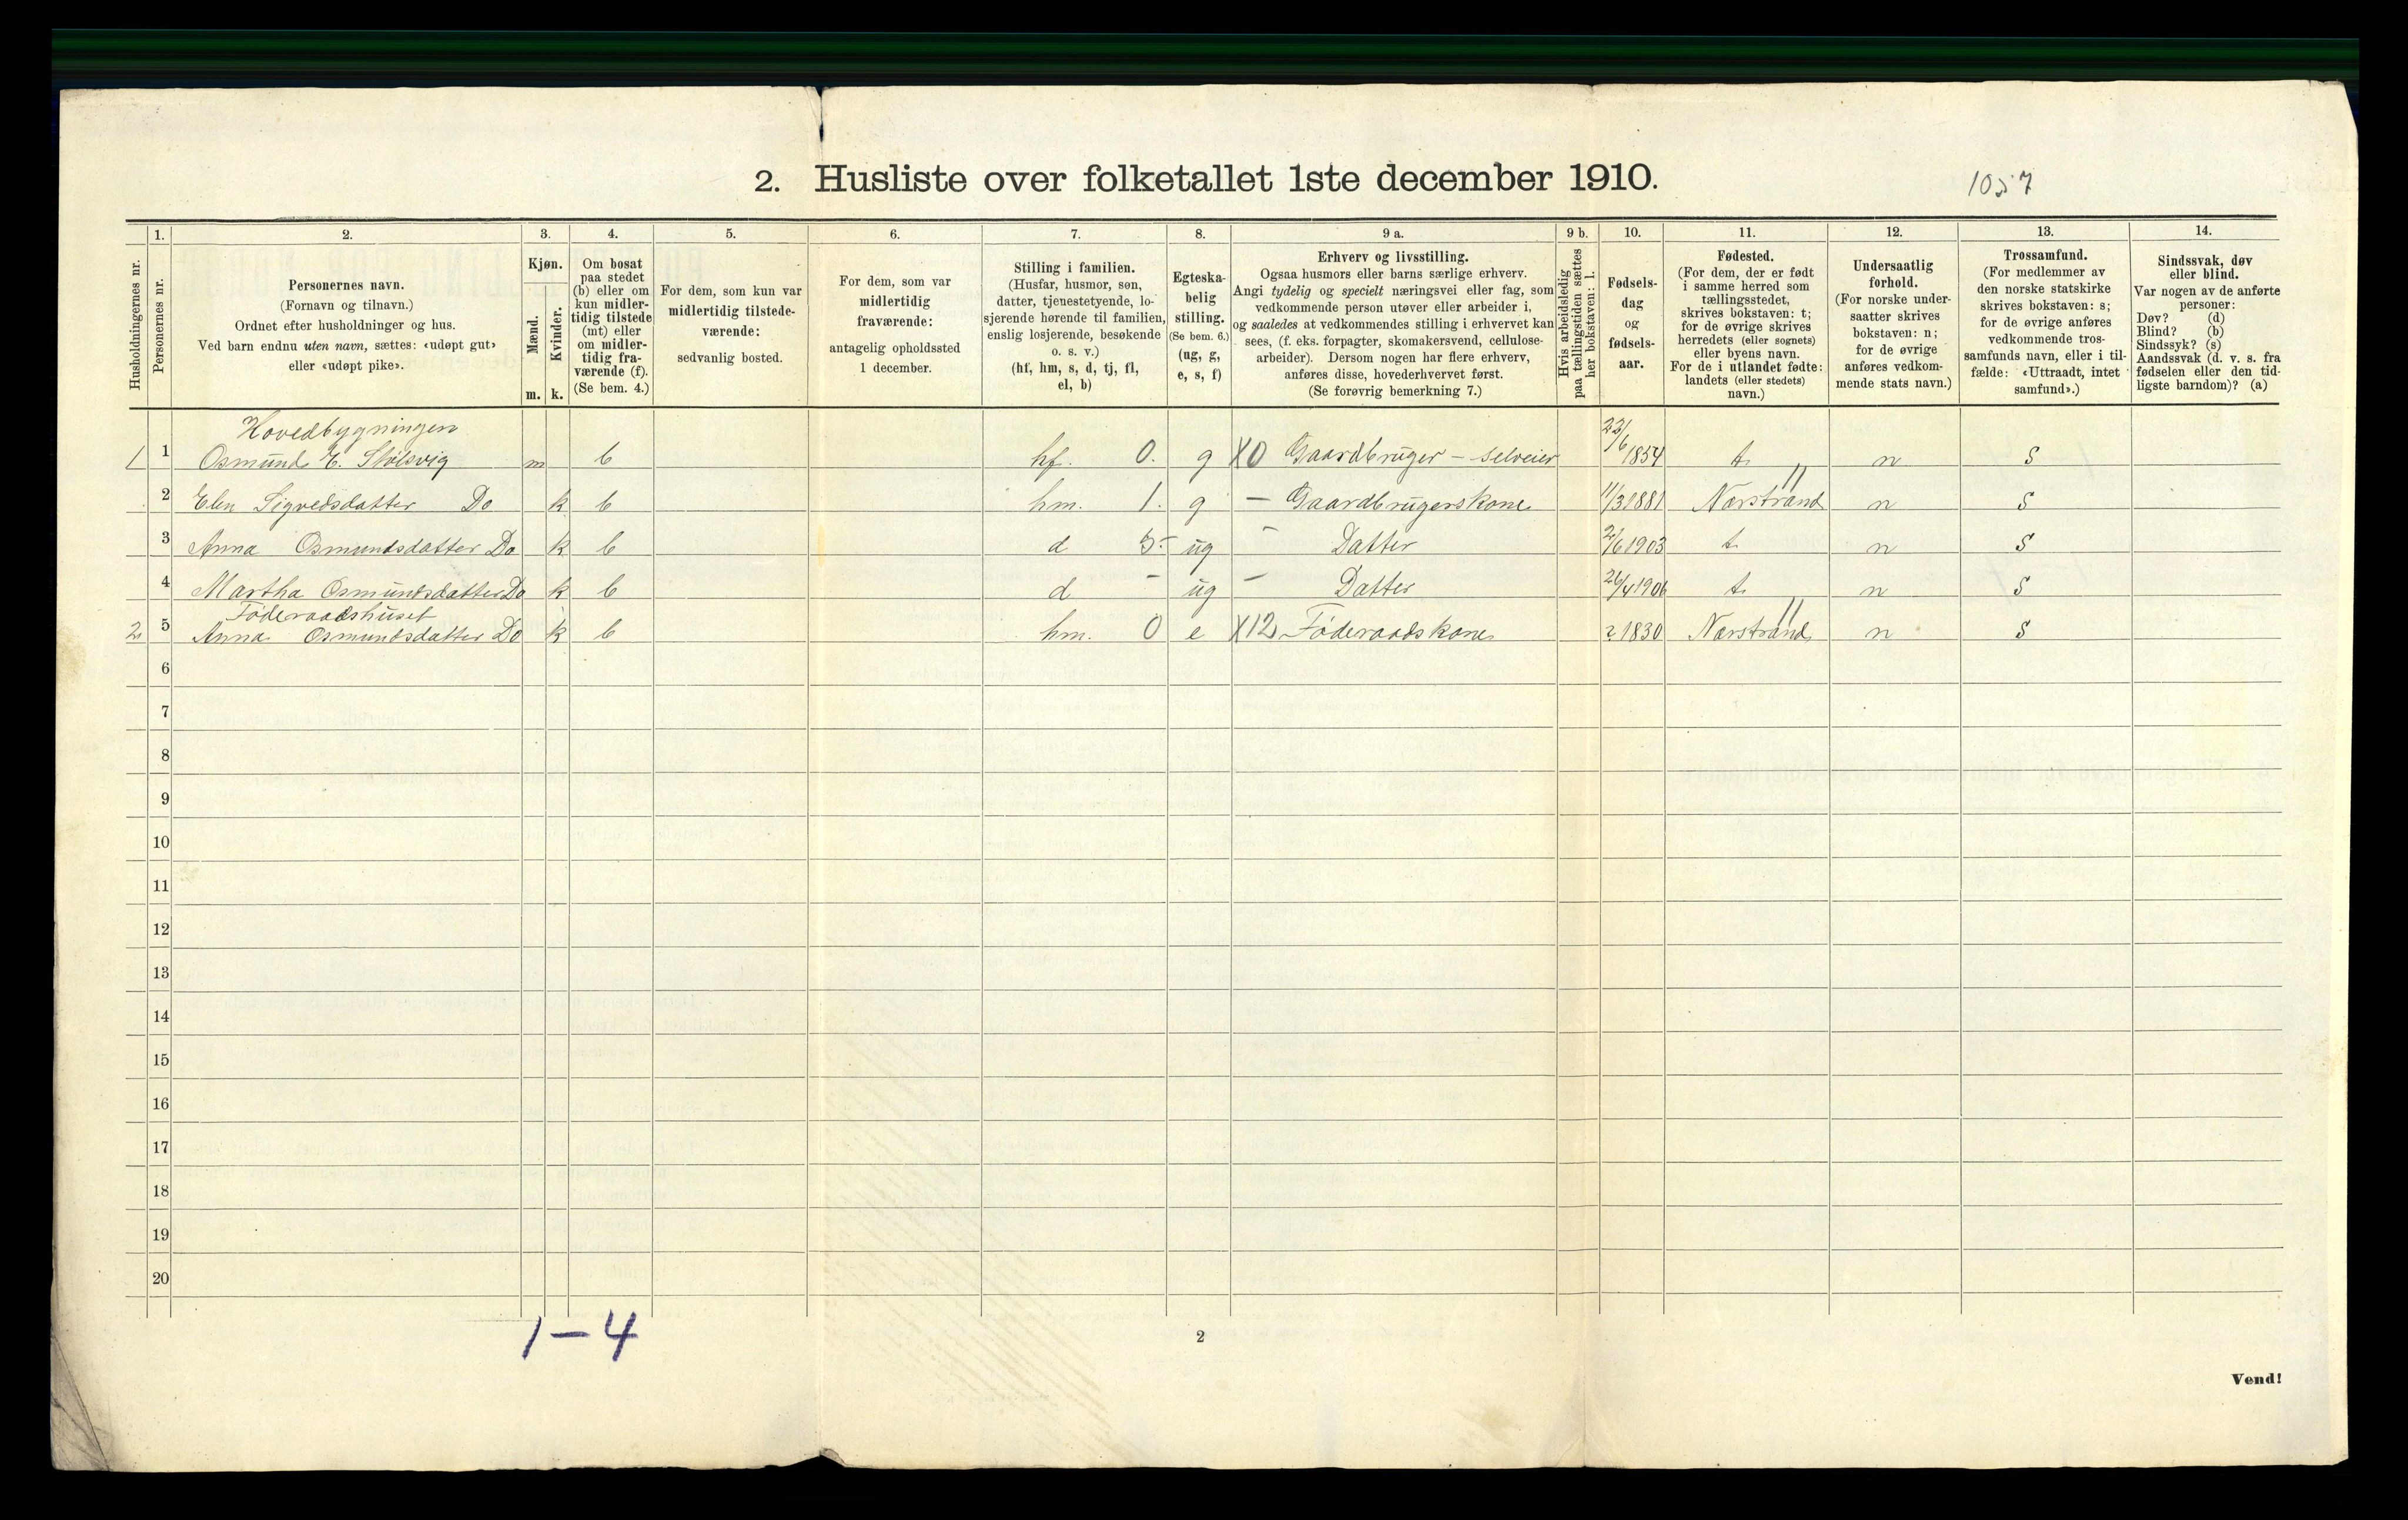 2. Husliste over folketallet 1ste december 1910.
1057
Husholdningernes nr.
1.
Personernes nr.
2.
Personernes navn.
(Fornavn og tilnavn.)
Ordnet efter husholdninger og hus.
Ved barn endnu uten navn, sættes: «udøpt gut»
eller «udøpt pike».
3.
Kjøn.
Mænd.
Kvinder.
m. k.
4.
Om bosat
paa stedet
(b) eller om
kun midler-
tidig tilstede
(mt) eller
om midler-
tidig fra-
værende (f).
(Se bem. 4.)
5.
For dem, som kun var
midlertidig tilstede-
værende:
sedvanlig bosted.
6.
For dem, som var
midlertidig
fraværende:
antagelig opholdssted
1 december.
7.
Stilling i familien.
(Husfar, husmor, søn,
datter, tjenestetyende, lo-
sjerende hørende til familien,
enslig losjerende, besøkende
o. s. v.)
(hf, hm, s, d, tj, fl,
el, b)
8.
Egteska-
belig
stilling.
(Se bem. 6.)
(ug, g,
e, s, f)
9 a.
Erhverv og livsstilling.
Ogsaa husmors eller barns særlige erhverv.
Angi tydelig og specielt næringsvei eller fag, som
vedkommende person utøver eller arbeider i,
og saaledes at vedkommendes stilling i erhvervet kan
sees, (f. eks. forpagter, skomakersvend, cellulose-
arbeider). Dersom nogen har flere erhverv,
anføres disse, hovederhvervet først.
(Se forøvrig bemerkning 7.)
9 b.
Hvis arbeidsledig
paa tællingstiden sættes
her bokstaven: l.
10.
Fødsels-
dag
og
fødsels-
aar.
11.
Fødested.
(For dem, der er født
i samme herred som
tællingsstedet,
skrives bokstaven: t;
for de øvrige skrives
herredets (eller sognets)
eller byens navn.
For de i utlandet fødte:
landets (eller stedets)
navn.)
12.
Undersaatlig
forhold.
(For norske under-
saatter skrives
bokstaven: n;
for de øvrige
anføres vedkom-
mende stats navn.)
13.
Trossamfund.
(For medlemmer av
den norske statskirke
skrives bokstaven: s;
for de øvrige anføres
vedkommende tros-
samfunds navn, eller i til-
fælde: «Uttraadt, intet
samfund».)
14.
Sindssvak, døv
eller blind.
Var nogen av de anførte
personer:
Døv? (d)
Blind? (b)
Sindssyk? (s)
Aandssvak (d. v. s. fra
fødselen eller den tid-
ligste barndom)? (a)
Hovedbygningen
1 1 Osmund E. Stølsvig m b hf. 0. g X0 Gaardbruger - selveier 22/6 1854 t. n s
2 Elen Sigvedsdatter Do k b hm. 1. g - Gaardbrugerskone 11/3 1881 Nærstrand n s
3 Anna Osmundsdatter Do k b d 5. ug - Datter 2/6 1903 t. n s
4 Martha Osmundsdatter Do k b d - ug - Datter 26/4 1906 t. n s
Föderaadshuset
2 5 Anna Osmundsdatter Do k b hm. 0 e X12 Föderaadskone 1830 Nærstrand n s
6
7
8
9
10
11
12
13
14
15
16
17
18
19
20
1-4
2
Vend!